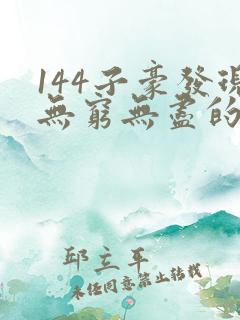 144子豪發現
無窮無盡的
邱立平
未經同意禁止轉載